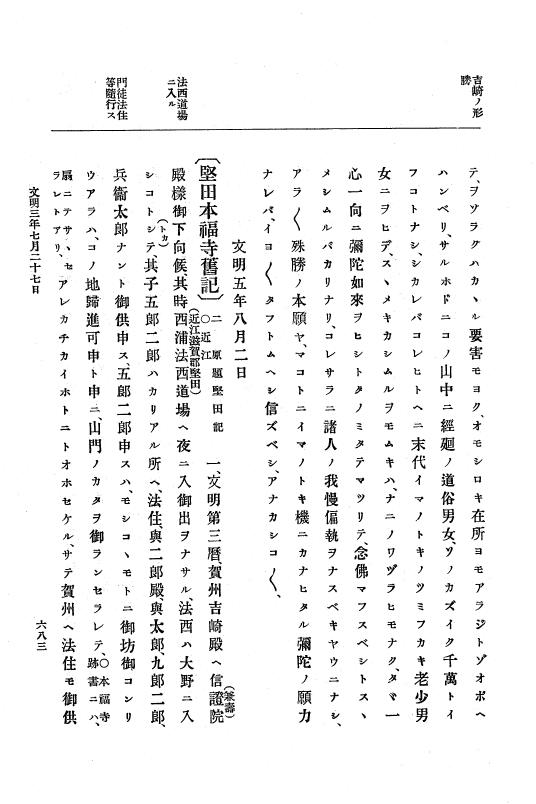 吉崎ノ形
勝
法西道場
ニ入ル
門徒法住
等隨行ス
テ、ヲソラクハカヽル要害モヨク、オモシロキ在所ヨモアラジトゾオボヘ
ハンベリ、サルホドニコノ山中ニ經廻ノ道俗男女、ソノカズイク千萬トイ
フコトナシ、シカレバコレヒトヘニ末代イマノトキノツミフカキ老少男
女ニヲヒデ、スヽメキカシムルヲモムキハ、ナニノワヅラヒモナク、タヾ一
心一向ニ彌陀如來ヲヒシトタノミタテマツリテ、念佛マフスベシトスヽ
メシムルバカリナリ、コレサラニ諸人ノ我慢偏執ヲナスベキヤウニナシ、
アラ〳〵殊勝ノ本願ヤ、マコトニイマノトキ機ニカナヒタル彌陀ノ願力
ナレバ、イヨ〳〵タフトムヘシ信ズベシ、アナカシコ〳〵、
文明五年八月二日
〔堅田本福寺舊記〕二 原題堅田記 〇近江 一、文明第三曆、賀州吉崎殿ヘ信證院(兼壽)
殿樣御下向候、其時西浦法西道場(近江滋賀郡堅田)ヘ夜ニ入御出ヲナサル、法西ハ大野ニ入
シコトシテ(トカ)、其子五郎二郎ハカリアル所ヘ、法住、與二郎殿、與太郎、九郎二郎、
兵衞太郎ナント御供申ス、五郎二郎申スハ、モシコヽモトニ御坊御コンリ
ウアラハ、コノ地歸進可申ト申ニ、山門ノカタヲ御ランセラレテ、〇本福寺跡書ニハ、
扇ニテサヽセラレトアリ、アレカチカイホトニトオホセケル、サテ賀州ヘ法住モ御供
文明三年七月二十七日
六八三